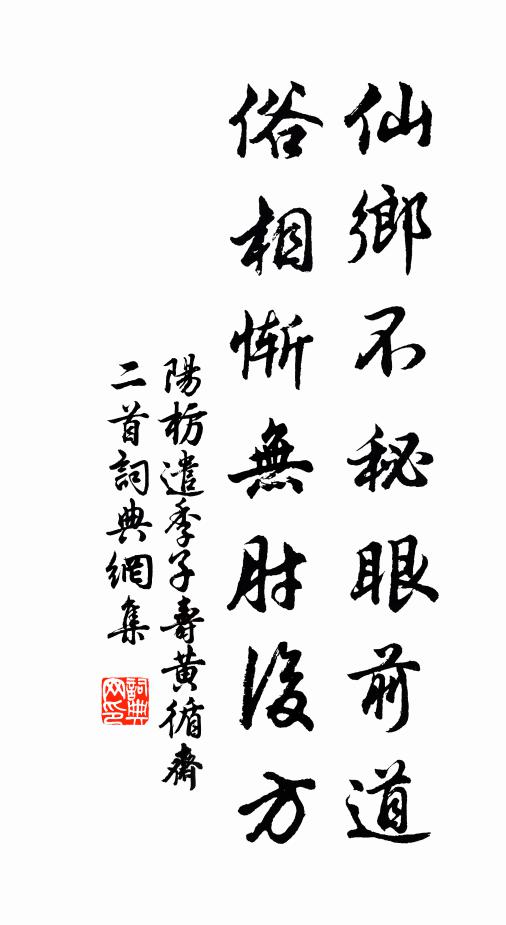 仙鄉不秘眼前道
俗相慚無肘後方
陽枋遣季子壽黃循齋
二首詞典網集
詞典網印